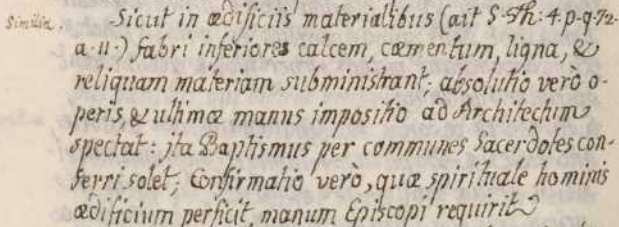 Similia. Sicut in ædificiis materialibus (ait S. Th: 4. p. q. 72.
a. 11.) fabri inferiores calcem, cæmentum, ligna, &
reliquam materiam subministrant; absolutio verò o-
peris, & ultimæ manus impositio ad Architectum
spectat: jta Baptismus per communes Sacerdotes con-
ferri solet; Confirmatio verò, quæ spirituale hominis
ædificium perficit, manum Episcopi requirit